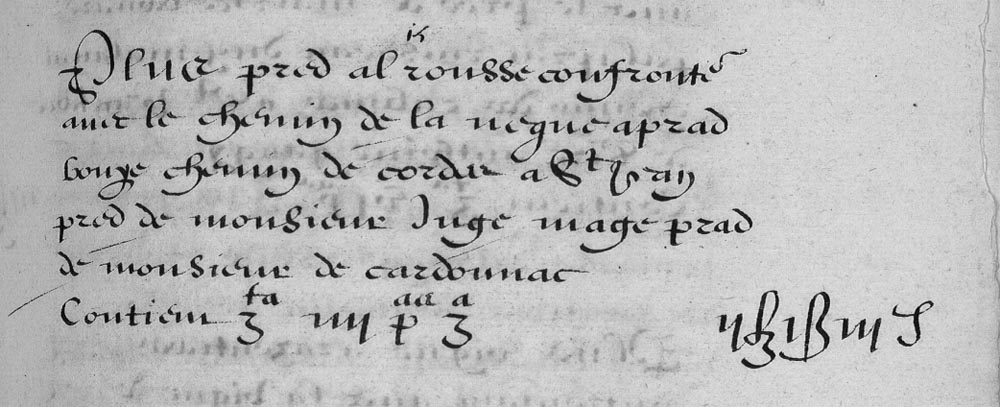 Plus pred al rousse confronte
avec le chemin de la negue a prad
bouge chemin de cordes a St Jean
pred de monsieur Juge mage prad
de monsieur de cardonnac
Contient iiii